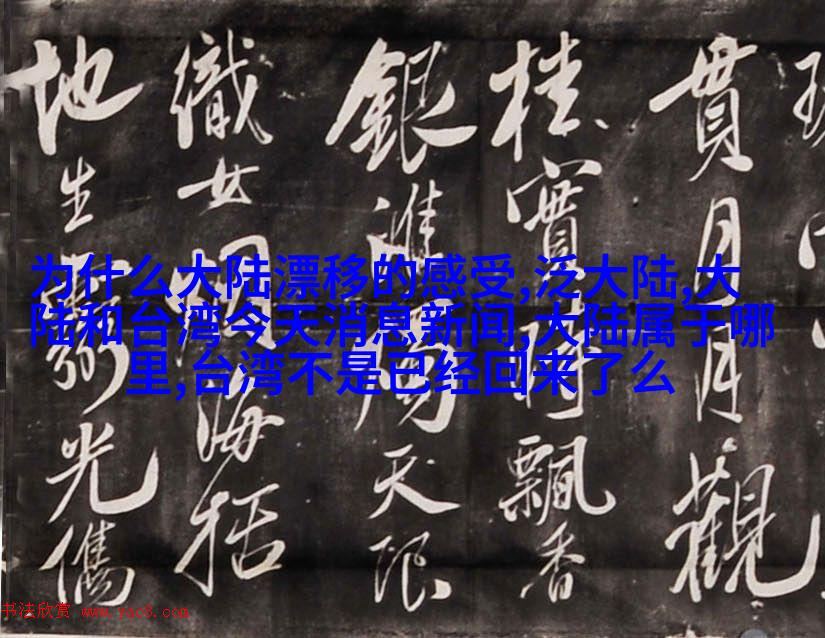 为什么大陆漂移的感受,泛大陆,大
陆和台湾今天消息新闻,大陆属于哪
里,台湾不是已经回来了么
貫月月觀
桂實時飄香
銀淮周天限
織女烟海括
地生弼光儁
书法欣赏 www.yac8.com